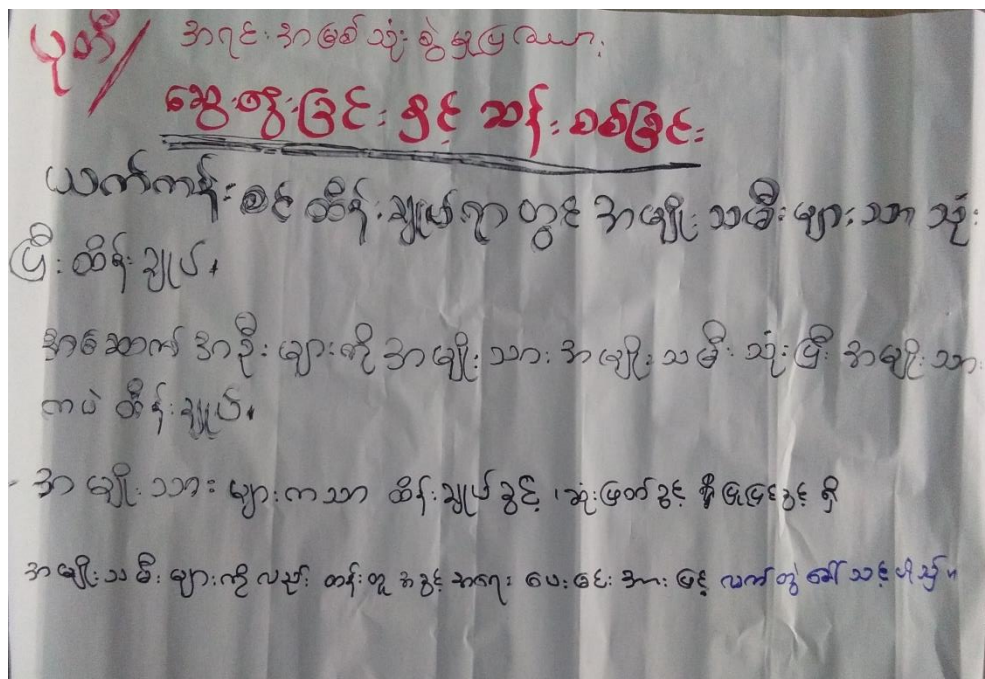 ပုတီး/ အရင်းအမြစ်သုံးစွဲမှုပြဿနာ
ဆွေးနွေးခြင်းနှင့် ဆန်းစစ်ခြင်း
ယက်ကန်းစင် ထိန်းချုပ်ရာတွင် အမျိုးသမီးများသာ သုံး
ပြီး ထိန်းချုပ်။
အဆောက်အဦးများကို အမျိုးသား အမျိုးသမီး သုံးပြီး အမျိုးသား
ကပဲ ထိန်းချုပ်။
- အမျိုးသားများကသာ ထိန်းချုပ်ခွင့် ၊ ဆုံးဖြတ်ခွင့် ပြုပြင်ခွင့် ရှိ
အမျိုးသမီးများကိုလည်း တန်းတူ အခွင့်အရေး ပေးခြင်းအားဖြင့် လက်တွဲခေါ်သင့်ပါသည်။